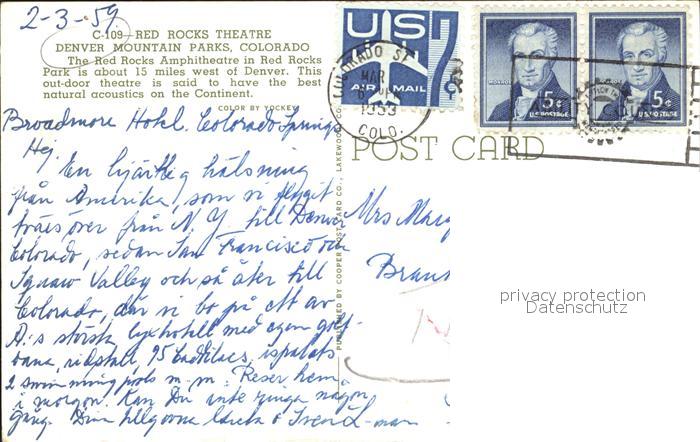 2-3-59
C-109—RED ROCKS THEATRE
DENVER MOUNTAIN PARKS, COLORADO
The Red Rocks Amphitheatre in Red Rocks
Park is about 15 miles west of Denver. This
out-door theatre is said to have the best
natural acoustics on the Continent.
COLOR BY YOCKEY
Broadmore Hotel. Colorado Springs
Hej.
En hjärtlig hälsning
från Amerika, som vi flyget
över från N.Y. till Denver
Colorado, sedan San Francisco och
Squaw Valley och så åter till
Colorado, där vi bo på ett av
A:s störsk lyxhotell med egen golf-
bana, ridstall, 95 Cadillacs, ispalats
2 swimming pools m-m. Reser hem
i morgon. Kan Du inte ringa någon
gång. Din tillgivna
PUBLISHED BY COOPER POST CARD CO., LAKEWOOD, COLO.
US
AIR MAIL
7¢
COLORADO
MAR
1959
COLO.
MONROE
5¢
U.S. POSTAGE
5¢
U.S. POSTAGE
POST CARD
Mrs
privacy protection
Datenschutz